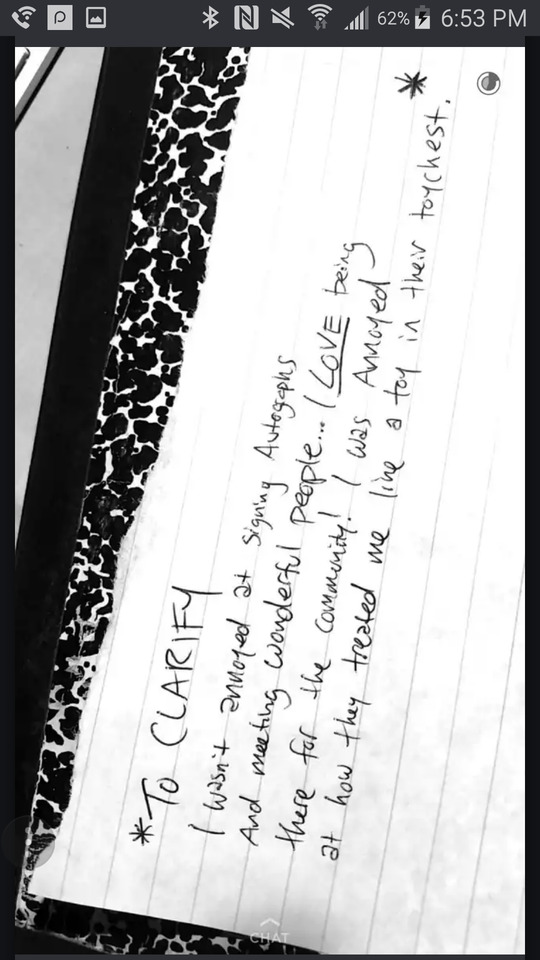 62% 6:53 PM
*TO CLARIFY
I wasn't annoyed at signing Autographs
And meeting wonderful people... I LOVE being
there for the community! I was Annoyed
at how they treated me like a toy in their toychest. *
CHAT